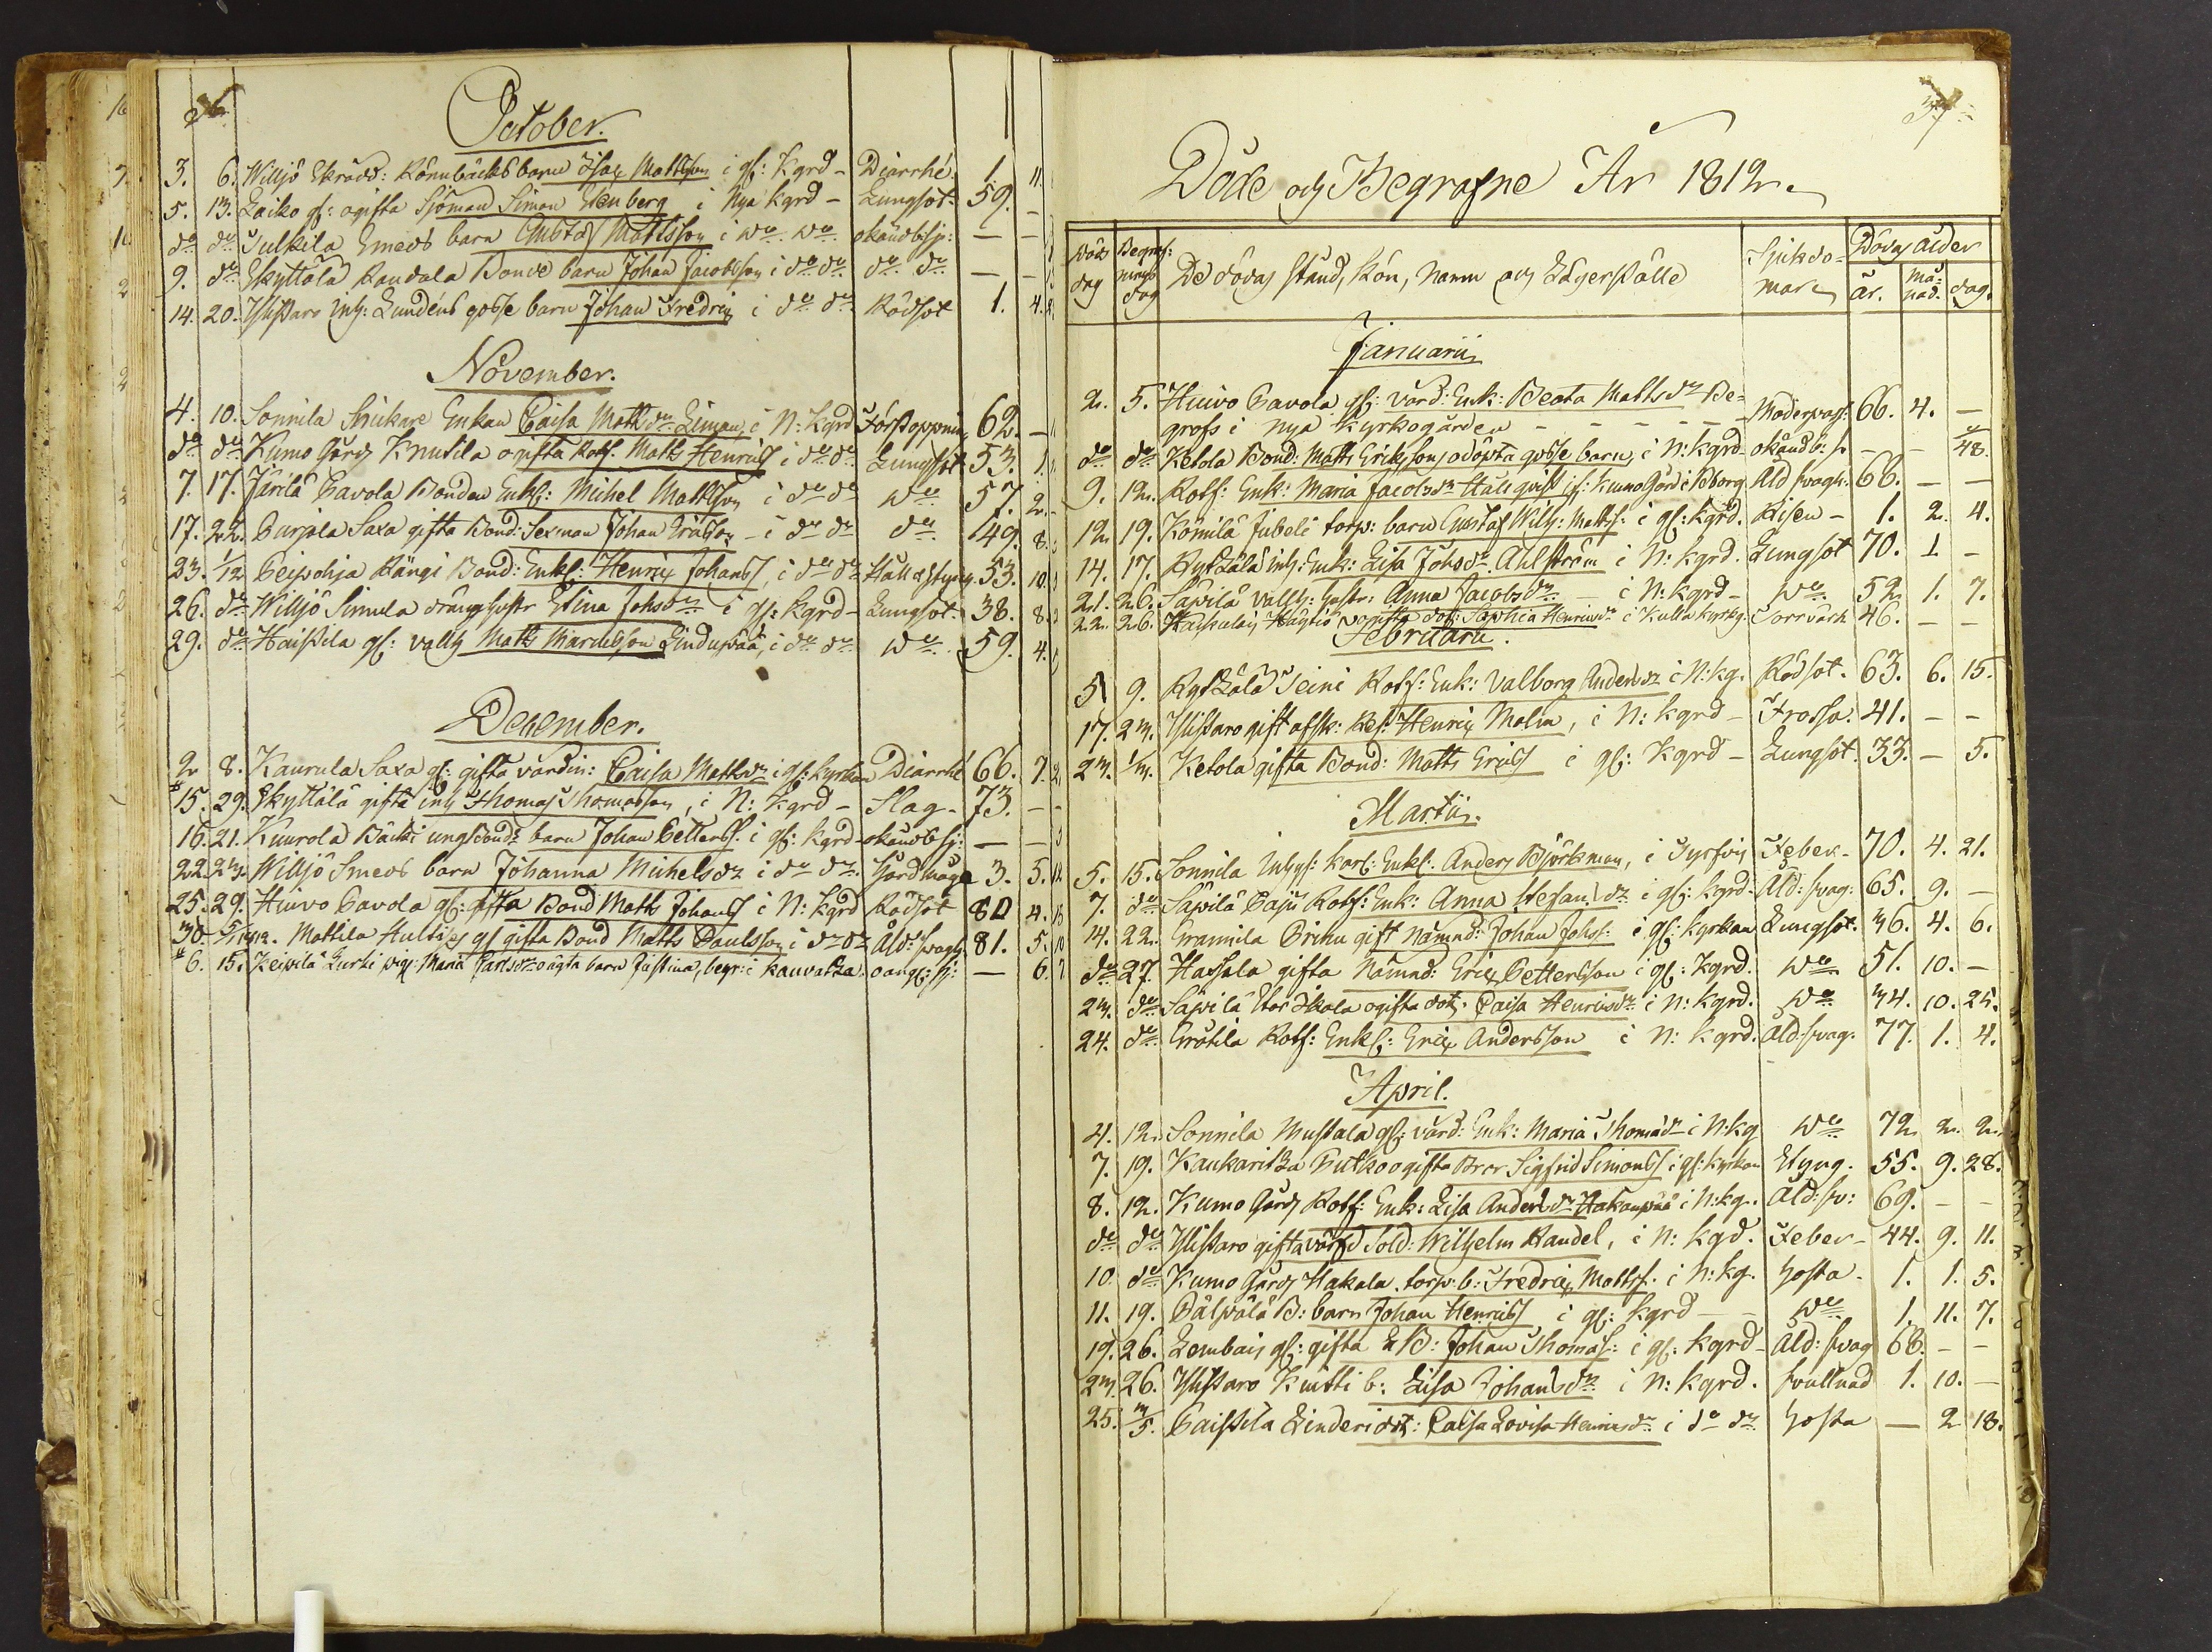 October.
3. 6. Willjö Skrädd: Rönnbäcks barn Isaac Mattsson i gl: Kgrd - Diarrhé. 1. 11.
5. 13. Laiko gl: ogifta Sjöman Simon Stenberg i Nya kgrd - Lungsot - 59. -
do do Julkila Smeds barn Gustaf Mattsson i do do okänd sj: - -
9. do Skyttälä Randala Bonde barn Johan Jacobsson i do do do do - -
14. 20. Ylistaro inh: Lundéns gosse barn Johan Fredric i do do Rödsot 1. 4.
November.
4. 10. Sonnila Snickare Enkan Caisa Mattsdr Liman, i N: kgrd Förstoppning 62. -
do do Kumo Gård Knutila ogifta Rotf. Matts Henricss i do do Lungsot 53. 1.
7. 17. Järilä Pavola Bonden Enkl: Michel Mattsson i do do do 57. 2.
17. 22. Purjala Saxa gifta Bond: Sexman Johan Ersson - i do do do 49. 8.
23. 1/12 Peipohja Rängi Bond: Enkl: Henric Johanss, i do do Håll & Styng. 53. 10.
26. do Willjö Simula dränghustr Stina Johsdr i gl: kgrd - Lungsot. 38. 8.
29. do Haistila gl: vallh Matts Marcusson Lindupää, i do do do 59. 4.
December.
2 8. Kaurula Saxa gl: gifta värdin: Caisa Mattsdr i gl: kyrkan Diarrhé 66. 7.
15. 29. Skyttälä gifta inh Thomas Thomasson, i N: kgrd - Slag - 73. - -
16. 21. Kuurola Bäcki ungbonds barn Johan Petterss. i gl: kgrd okänd sj: - -
22. 23. Willjö Smeds barn Johanna Michelsdr i do do 3. 5.
25. 29. Huivo Pavola gl: gifta Bond Matts Johanss i N: kgrd Rödsot 80 4.
30. 5/1 1812. Mattila Hultis gl gifta Bond Matts Paulsson i do do Åld: svagh 81. 5.
6. 15. Keipilä Lurki pig: Maria Carlsdr oägta barn Justina, begr: i Kauvatsa. oang: sj: - 6.
Döde och Begrafne År 1812.
Döds dag Begrafnings dag De dödas stånd, kön, namn och Lägerställe Sjukdomar Dödas ålder
år. månad. dag.
Januarii
2. 5. Huivo Pavola gl: värd: Enk: Beata Mattsdr Be-
grofs i nya kyrkogården - - - - - Moderpass: 66. 4. -
do do Ketola Bond: Matts Erikssons odöpta gosse barn, i N: kgrd - okänd b: s - - 48.
9. 12. Rotf: Enk: Maria Jacobsdr Hällqvist gl: Kumo Gård i Bborg Åld svagh: 66. - -
12. 19. Kömilä Jubeli torp: barn Gustaf Wilh: Mattss: i gl: kgrd. Risen - 1. 2. 4.
14. 17. Rytkälä inh: Enk: Lisa Johsdr Ahlström i N: kgrd. Lungsot 70. 1. -
21. 26. Säpilä vallh: hustr: Anna Jacobsdr - i N: kgrd - do 52. 1. 7.
22. 26. Häyhiö ogifta dott: Sophia Henricsdr i Kulla kyrkg. Torrvärk 46. - -
Februarii.
5 9. Rytkälä Seini Rotf: Enk: Valborg Andersdr i N: kg. Rödsot. 63. 6. 15.
17. 23. Ylistaro gift afsk: Res: Henric Malm, i N: kgrd - Frossa. 41. - -
23. 1/3. Ketola gifta Bond: Matts Ericss i gl: kgrd - Lungsot. 33. - 5.
Martii.
5. 15. Sonnila Inhys: karl: Enkl: Anders Björkman, i Tyrfvis Feber - 70. 4. 21.
7. do Säpilä Paju Rotf: Enk: Anna Stefansdr i gl: kgrd: Åld: svag: 65. 9. -
14. 22. Grannila Prinu gift Nämnd: Johan Johss: i gl: kyrkan Lungsot. 36. 4. 6.
do 27. Hassala gifta Nämnd: Eric Pettersson i gl: kgrd. do 51. 10. -
23. do Säpilä Stor Ikala ogifta dott: Caisa Henricsdr i N: kgrd. do 34. 10. 25.
24. do Grötila Rotf: Enkl: Eric Andersson i N: kgrd. Åld: svag. 77. 1. 4.
April.
4. 12. Sonnila Mustala gl: värd: Enk: Maria Thomasdr i N: kg do 72. 2. 2.
7. 19. Kaukaritza Prutko ogifta Brer Sigfrid Simonss i gl: kyrkan Styng. 55. 9. 28.
8. 12. Kumo Gård Rotf: Enk: Lisa Andersdr Hakanpää i N: kg. Åld: sv: 69. - -
do do Ylistaro gifta värfd Sold: Wilhelm Randel, i N: kgd. Feber - 44. 9. 11.
10. do Kumo Gård Hakala. torp: b: Fredric Mattss. i N: kg. Hosta - 1. 1. 5.
11. 19. Pälpälä B: barn Johan Henricss i gl: kgrd - - do 1. 11. 7.
19. 26. Lembais gl: gifta B: Johan Thomass: i gl: kgrd - Åld: svag 68. - -
23. 26. Ylistaro Knitti b: Lisa Johansdr i N: kgrd. svullnad 1. 10. -
25. 3/5. Caistila Linderi dott: Caisa Lovisa Henricsdr i do do Hosta - 2 18.